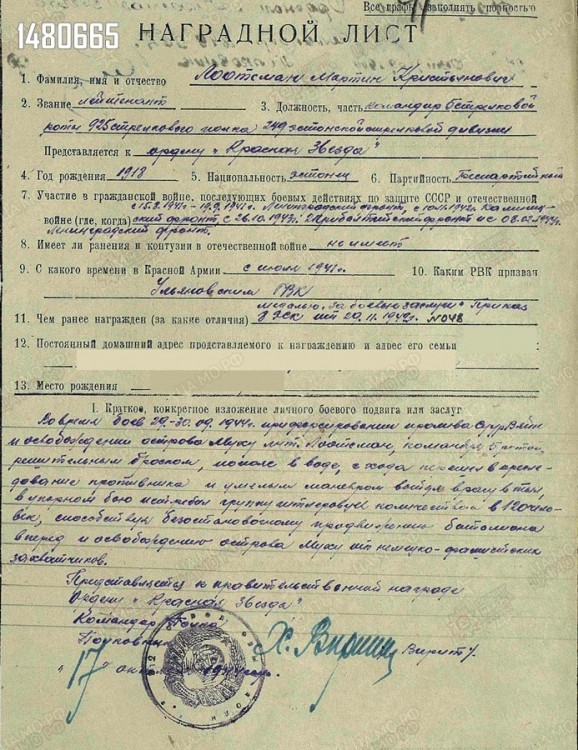 Все графы заполнять полностью
1480665
НАГРАДНОЙ ЛИСТ
1. Фамилия, имя и отчество Лоотсман Мартин Кристьянович
2. Звание лейтенант 3. Должность, часть командир 5 стрелковой
роты 925 стрелкового полка 249 эстонской стрелковой дивизии
Представляется к ордену „Красная Звезда"
4. Год рождения 1918 5. Национальность эстонец 6. Партийность беспартийный
7. Участие в гражданской войне, последующих боевых действиях по защите СССР и отечественной
войне (где, когда) с Ленинградский фронт, с Калинин-
ский фронт, с 26.10.1943г. 2 Прибалтийский фронт и с 08.02.1944г.
Ленинградский фронт.
8. Имеет ли ранения и контузии в отечественной войне не имеет
9. С какого времени в Красной Армии с июля 1941г. 10. Каким РВК призван
Ульяновским РВК
медалью „за боевые заслуги" Приказ
11. Чем ранее награжден (за какие отличия) от 20.11.1942г. №048
12. Постоянный домашний адрес продставляемого к награждению и адрес его семьи
13. Место рождения
I. Краткое, конкретное изложение личного боевого подвига или заслуг
Во время боев 29-30.09.1944г. при форсировании пролива Суур-Вяйн
и освобождении острова Муху лт. Лоотсман, командир 5 роты
решительным броском, по пояс в воде, с хода перешел в пресле-
дование противника и умелым маневром войдя врагу в тыл,
в упорном бою истребил группу гитлеровцев количеством в 120 чело-
век, способствуя безостановочному продвижению батальона
вперед и освобождению острова Муху от немецко-фашистских
захватчиков.
Представляется к правительственной награде
Ордену „Красная Звезда"
Командир полка
Полковник Вирит
"17" октября 1944г.